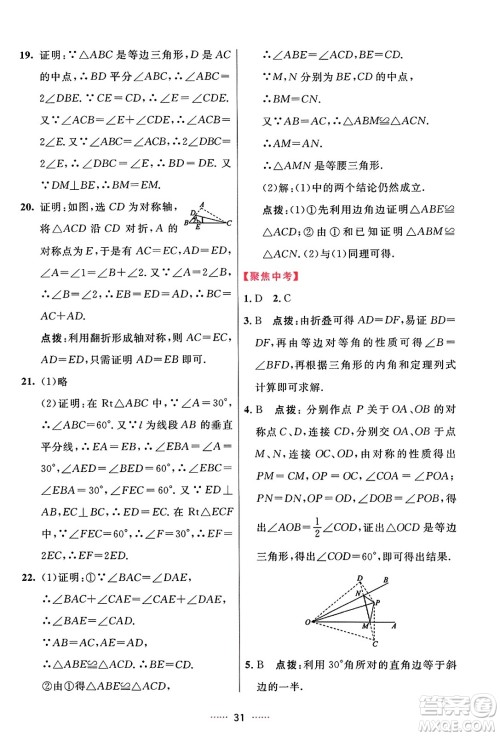 19. 证明：∵△ABC是等边三角形，D是AC
的中点，∴BD平分∠ABC，∴∠ABC=
2∠DBE. ∵DC=CE，∴∠E=∠CDE.
又∵∠ACB=∠E+∠CDE，∴∠ACB=
2∠E. 又∵∠ABC=∠ACB，∴2∠DBE=
2∠E，∴∠DBE=∠E，∴BD=DE.
又∵DM⊥BE，∴BM=EM.
20. 证明：如图，选CD为对称轴，
将△ACD沿CD对折，A的
对称点为E，则有AC=EC，
∠A=∠1=2∠B，AD=ED.
又∵∠1=∠B+∠2，∴∠2=
∠B，∴BE=ED，∴BC=EC+BE=
AC+AD.
点拨：利用翻折形成轴对称，则有AC=
EC，AD=ED.
21. (1)略
(2)证明：在Rt△ABC中，∵∠A=30°，
∴∠ABC=60°. 又∵l为线段AB的垂直
平分线，∴EA=EB，∴∠EBA=∠A=
30°，∠AED=∠BED=60°，∴∠EBC=
∠EBA=30°，∠FEC=60°. 又∵ED⊥
AB，EC⊥BC，∴ED=EC. 在Rt△ECF
中，∵∠FEC=60°，∴∠EFC=30°，
∴EF=2EC，∴EF=2ED.
22. (1)证明：①∵∠BAC=∠DAE，
∴∠BAC+∠CAE=∠DAE+∠CAE，
即∠BAE=∠CAD.
又∵AB=AC，AD=AE，
∴△ABE≌△ACD，
∴BE=CD.
②由△ABE≌△ACD，得
∠ABE=∠ACD，BE=CD.
又∵M，N分别为BE，CD的中点，
∴BM=CN.
又∵AB=AC，
∴△ABM≌△ACN，
∴AM=AN，
∴△AMN是等腰三角形.
(2)解：(1)中的两个结论仍然成立.
点拨：(1)①先利用边角边证明△ABE≌
△ACD，②再利用边角边证明△ABM≌
△ACN. (2)与(1)同理可得.
【聚焦中考】
1. D 2. C
3. B 点拨：由折叠可得AD=DF，∵AD=
BD，∴BD=DF，由等边对等角得∠B=
∠BFD，再根据三角形的内角和定理列式
计算即可求解.
4. B 点拨：分别作点P关于OA、OB的对
称点C、D，连接CD，分别交OA、OB于点
M、N，连接OC、OD，由对称的性质得出
PM=CM，OP=OC，∠COA=∠POA；
PN=DN，OP=OD，∠DOB=∠POB，得
出∠AOB=1/2∠COD，证出△OCD是等边
三角形，得出∠COD=60°，即可得出结果.
D
B
N
P
O
M
A
C
5. B 点拨：利用30°角所对的直角边等于斜
边的一半.
31